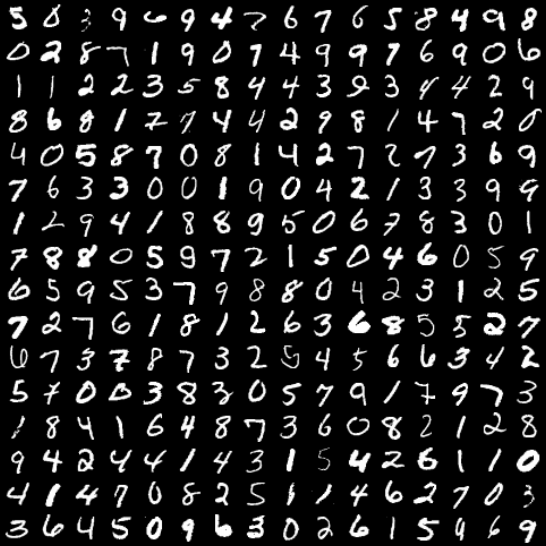 5 0 3 9 6 9 4 7 6 7 6 5 8 4 9 8
0 2 8 7 1 9 0 7 4 9 9 7 6 9 0 6
1 1 2 2 3 5 8 4 4 3 9 3 4 4 2 9
8 6 8 1 7 7 4 4 2 9 8 1 4 7 2 0
4 0 5 8 7 0 8 1 4 2 7 2 7 3 6 9
7 6 3 3 0 0 1 9 0 4 2 1 3 3 9 9
1 2 9 4 1 8 8 9 5 0 6 7 8 3 0 1
7 8 8 0 5 9 7 2 1 5 0 4 6 0 5 9
6 5 9 5 3 7 9 8 8 0 4 2 3 1 2 5
7 2 7 6 1 8 1 2 6 3 6 8 5 5 2 7
6 7 3 7 8 7 3 2 5 4 5 6 6 3 4 2
5 7 0 0 3 8 3 0 5 7 9 1 7 9 7 3
1 8 4 1 6 4 8 7 3 6 0 8 2 1 2 8
9 4 2 4 4 1 4 3 1 5 4 2 6 1 1 0
4 1 4 7 0 8 2 5 1 1 4 6 2 7 0 3
3 6 4 5 0 9 6 3 0 2 6 1 5 9 6 9